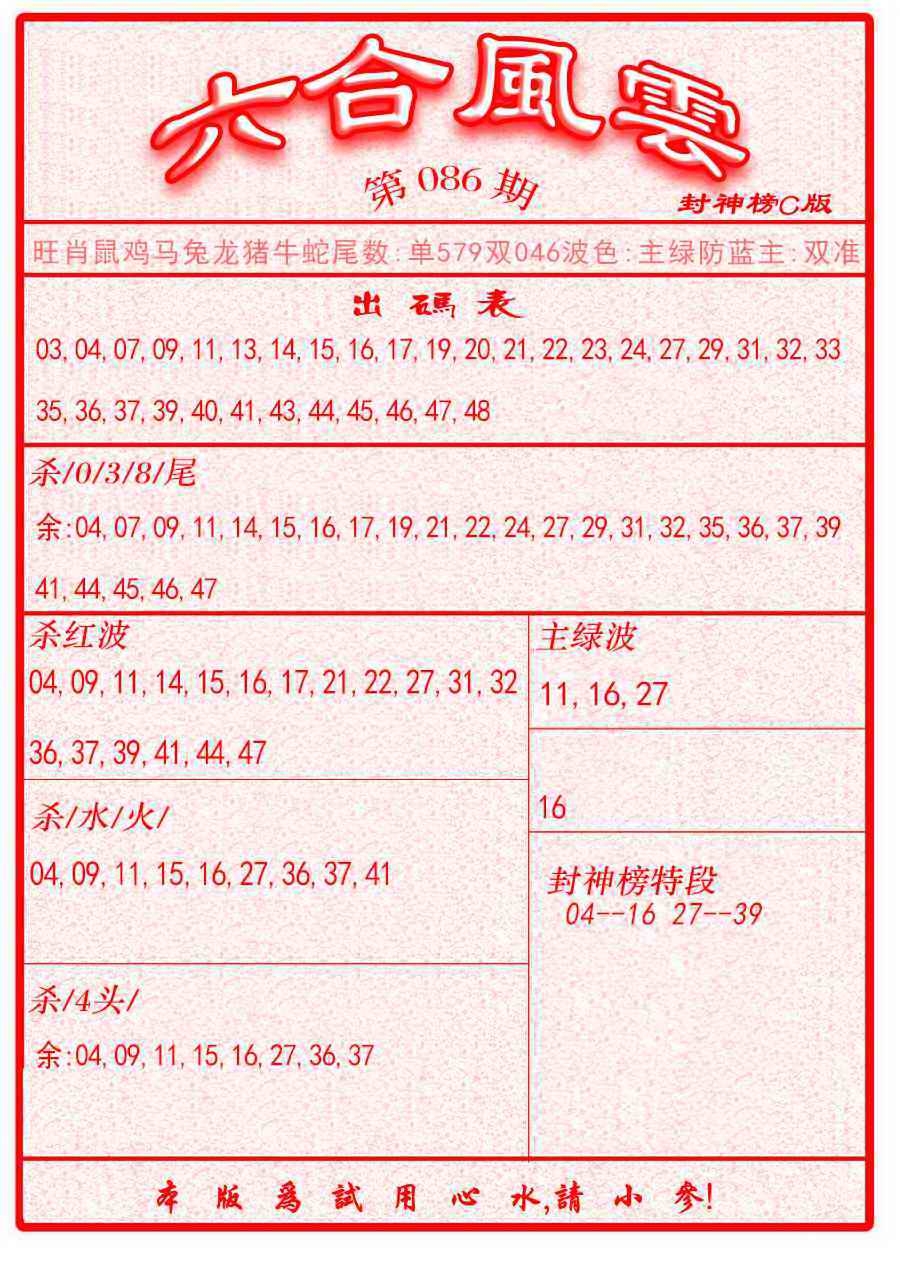 六合風雲
第 086 期
封神榜C版
旺肖鼠鸡马兔龙猪牛蛇尾数:单579双046波色:主绿防蓝主:双准
出碼表
03,04,07,09,11,13,14,15,16,17,19,20,21,22,23,24,27,29,31,32,33
35,36,37,39,40,41,43,44,45,46,47,48
杀/0/3/8/尾
余:04,07,09,11,14,15,16,17,19,21,22,24,27,29,31,32,35,36,37,39
41,44,45,46,47
杀红波
04,09,11,14,15,16,17,21,22,27,31,32
36,37,39,41,44,47
主绿波
11,16,27
16
杀/水/火/
04,09,11,15,16,27,36,37,41
封神榜特段
04--16 27--39
杀/4头/
余:04,09,11,15,16,27,36,37
本版爲試用心水,請小參!